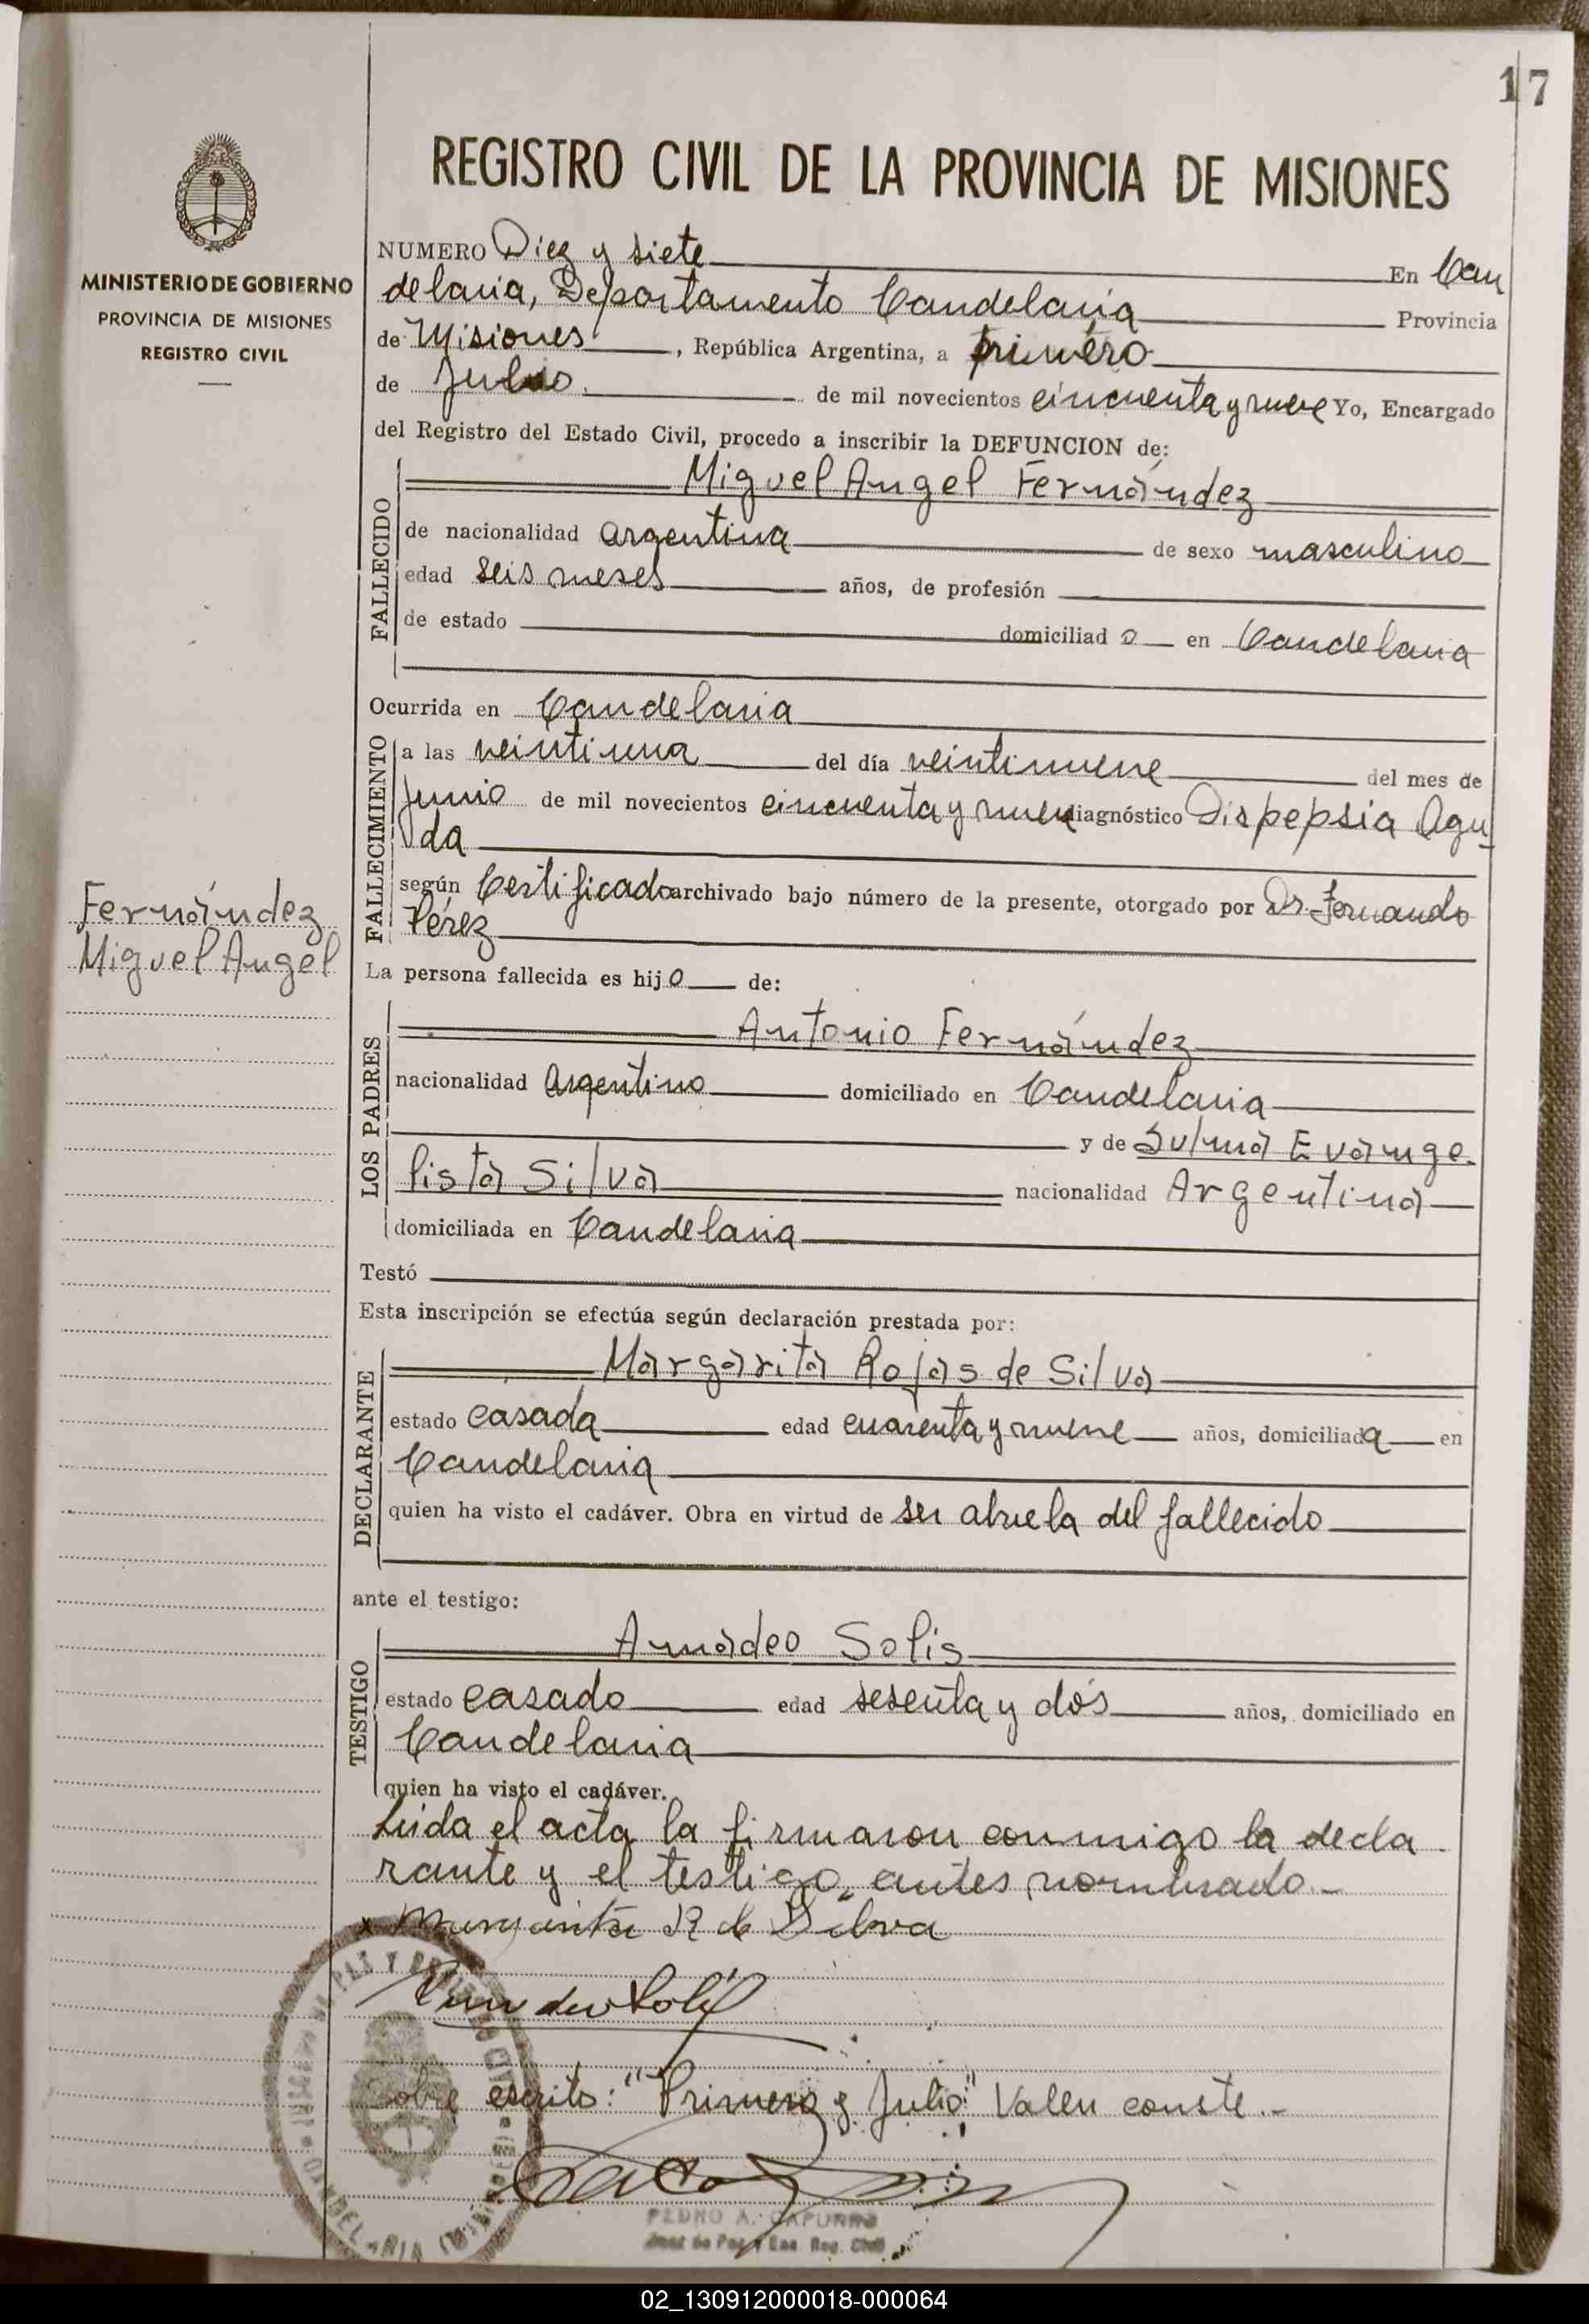 17
REGISTRO CIVIL DE LA PROVINCIA DE MISIONES
MINISTERIO DE GOBIERNO
PROVINCIA DE MISIONES
REGISTRO CIVIL
NUMERO Diez y siete En Can
delaria, Departamento Candelaria Provincia
de Misiones, República Argentina, a primero
de Julio de mil novecientos cincuenta y nueve Yo, Encargado
del Registro del Estado Civil, procedo a inscribir la DEFUNCION de:
FALLECIDO
Miguel Angel Fernández
de nacionalidad argentina de sexo masculino
edad seis meses años, de profesión
de estado domiciliad o en Candelaria
Ocurrida en Candelaria
FALLECIMIENTO
a las veintiuna del día veintinueve del mes de
Junio de mil novecientos cincuenta y nueve diagnóstico Dispepsia Agu
da
según Certificado archivado bajo número de la presente, otorgado por Dr. Fernando
Pérez
Fernández
Miguel Angel
La persona fallecida es hijo de:
LOS PADRES
Antonio Fernández
nacionalidad Argentino domiciliado en Candelaria
y de Sulma Evange
lista Silva nacionalidad Argentina
domiciliada en Candelaria
Testó
Esta inscripción se efectúa según declaración prestada por:
DECLARANTE
Margarita Rojas de Silva
estado casada edad cuarenta y nueve años, domiciliada en
Candelaria
quien ha visto el cadáver. Obra en virtud de ser abuela del fallecido
ante el testigo:
TESTIGO
Amadeo Solis
estado casado edad sesenta y dos años, domiciliado en
Candelaria
quien ha visto el cadáver.
Leida el acta la firmaron conmigo la decla
rante y el testigo antes nombrado.-
x Margarita R de Silva
Amadeo Solis
Sobre escrito: "Primero y Julio" Valen conste.-
PEDRO A. CAPURRO
Juez de Paz y Enc. Reg. Civil
CANDELARIA (MISIONES)
02_130912000018-000064